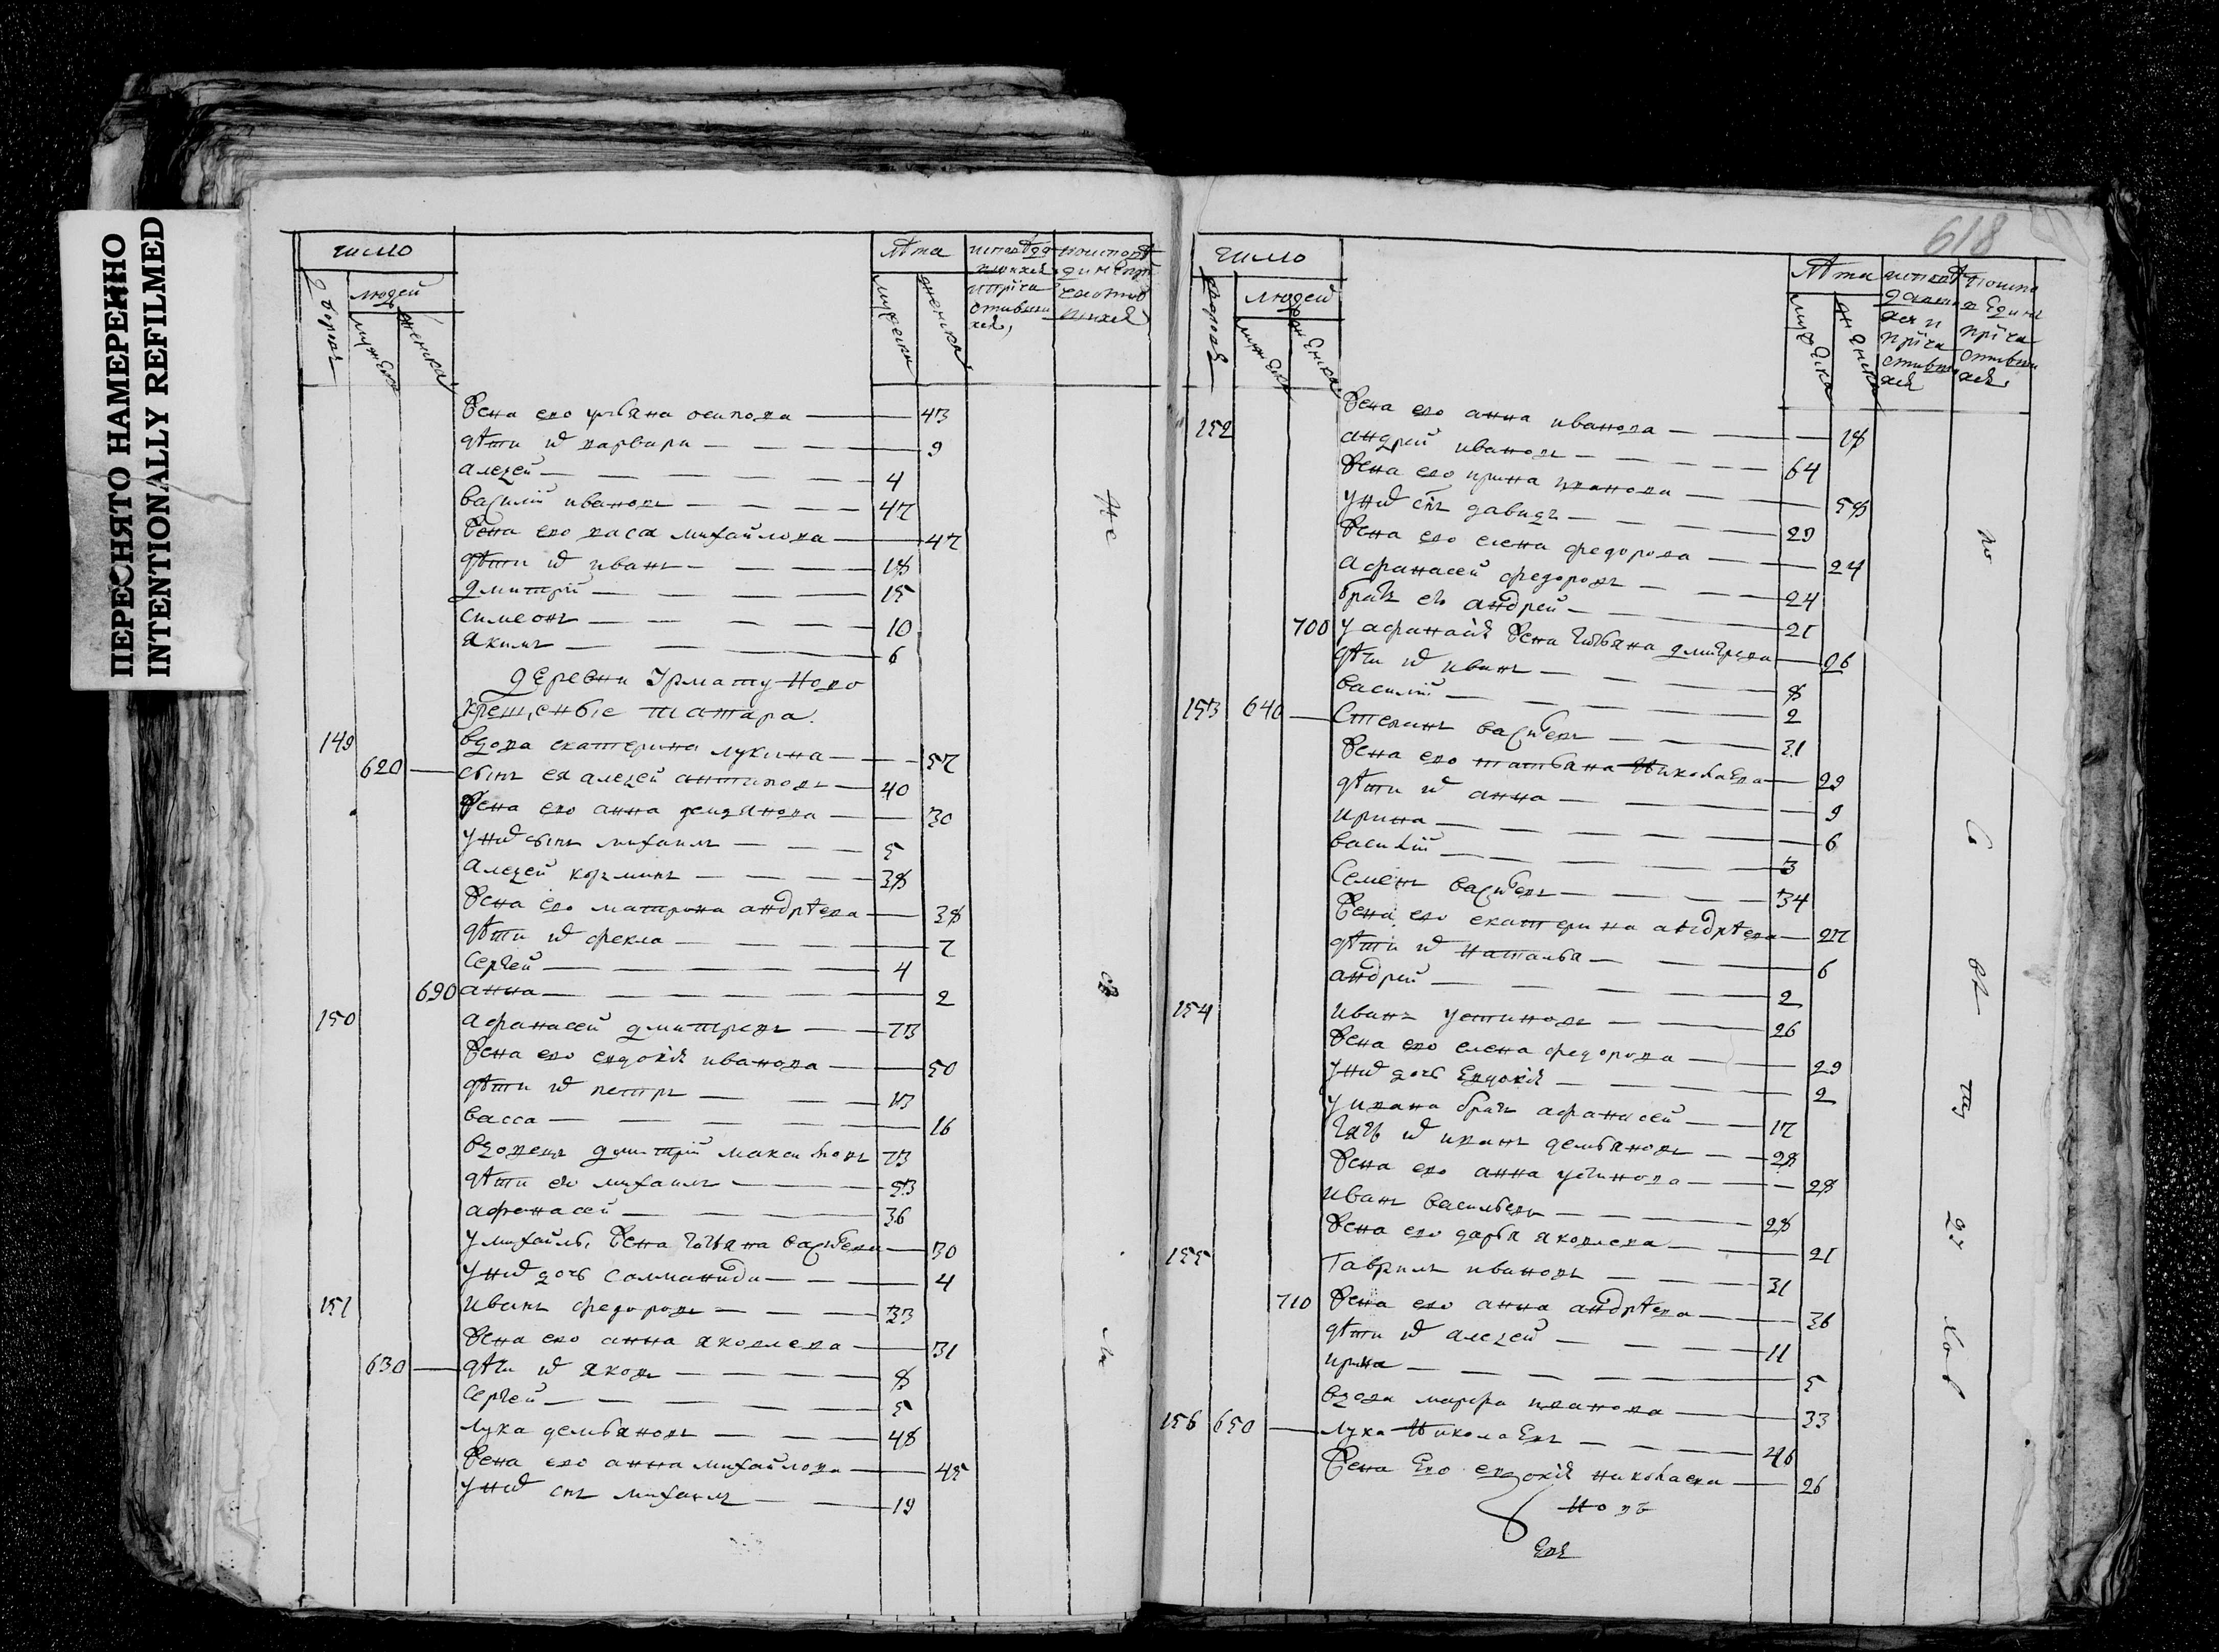 ПЕРЕСНЯТО НАМЕРЕННО
INTENTIONALLY REFILMED
число
дворовъ
людей
мужеска
женска
лѣта
мужеска
женска
жена ево ульяна осипова 43
дѣти их варвара 9
алеѯей 4
василий ивановъ 47
жена ево васа михайлова 47
дѣти их иванъ 18
дмитрий 15
симеонъ 10
якимъ 6
деревни Урмату ново
крещеные татара
149 вдова екатерина лукина 57
620 сынъ ея алеѯей антиповъ 40
жена ево анна демьянова 30
у них сынъ михаилъ 5
алеѯей козминъ 38
жена ево матрона андрѣева 38
дѣти их фекла 7
Сергей 4
690 анна 2
150 афанасей дмитревъ 73
жена ево евдокия иванова 50
дѣти их петръ 13
васса 16
вдовецъ дмитрий максимовъ 73
дѣти ево михаилъ 53
афонасей 36
у михаилы жена татьяна васильева 30
у них дочь соломанида 4
151 иванъ федоровъ 33
жена ево анна яковлева 31
630 дѣти их яковъ 8
Сергей 5
лука демьяновъ 48
жена ево анна михайлова 45
у них снъ михаилъ 19
618
число
дворовъ
людей
мужеска
женска
лѣта
мужеска
женска
жена ево анна иванова 18
152 андрей ивановъ 64
жена ево ирина иванова 58
у них снъ давидъ 23
жена ево елена федорова 24
афанасей федоровъ 24
братъ ево андрей 21
700 у афанасия жена татьяна дмитрева 26
дѣти их иванъ 8
василий 2
153 640 Степанъ васильевъ 31
жена ево татьяна николаева 29
дѣти их анна 9
ирина 6
василий 3
Семенъ васильевъ 34
жена ево екатерина андрѣева 27
дѣти их наталья 6
андрей 2
154 иванъ устиновъ 26
жена ево елена федорова 29
у них дочь евдокия 2
у ивана братъ афанасей 17
зять их иванъ демьяновъ 28
жена ево анна устинова 28
иванъ васильевъ 28
жена ево дарья яковлева 21
155 Гаврилъ ивановъ 31
710 жена ево анна андрѣева 36
дѣти их алеѯей 11
ирина 5
вдова марфа иванова 33
156 650 лука николаевъ 46
жена ево евдокия николаева 26